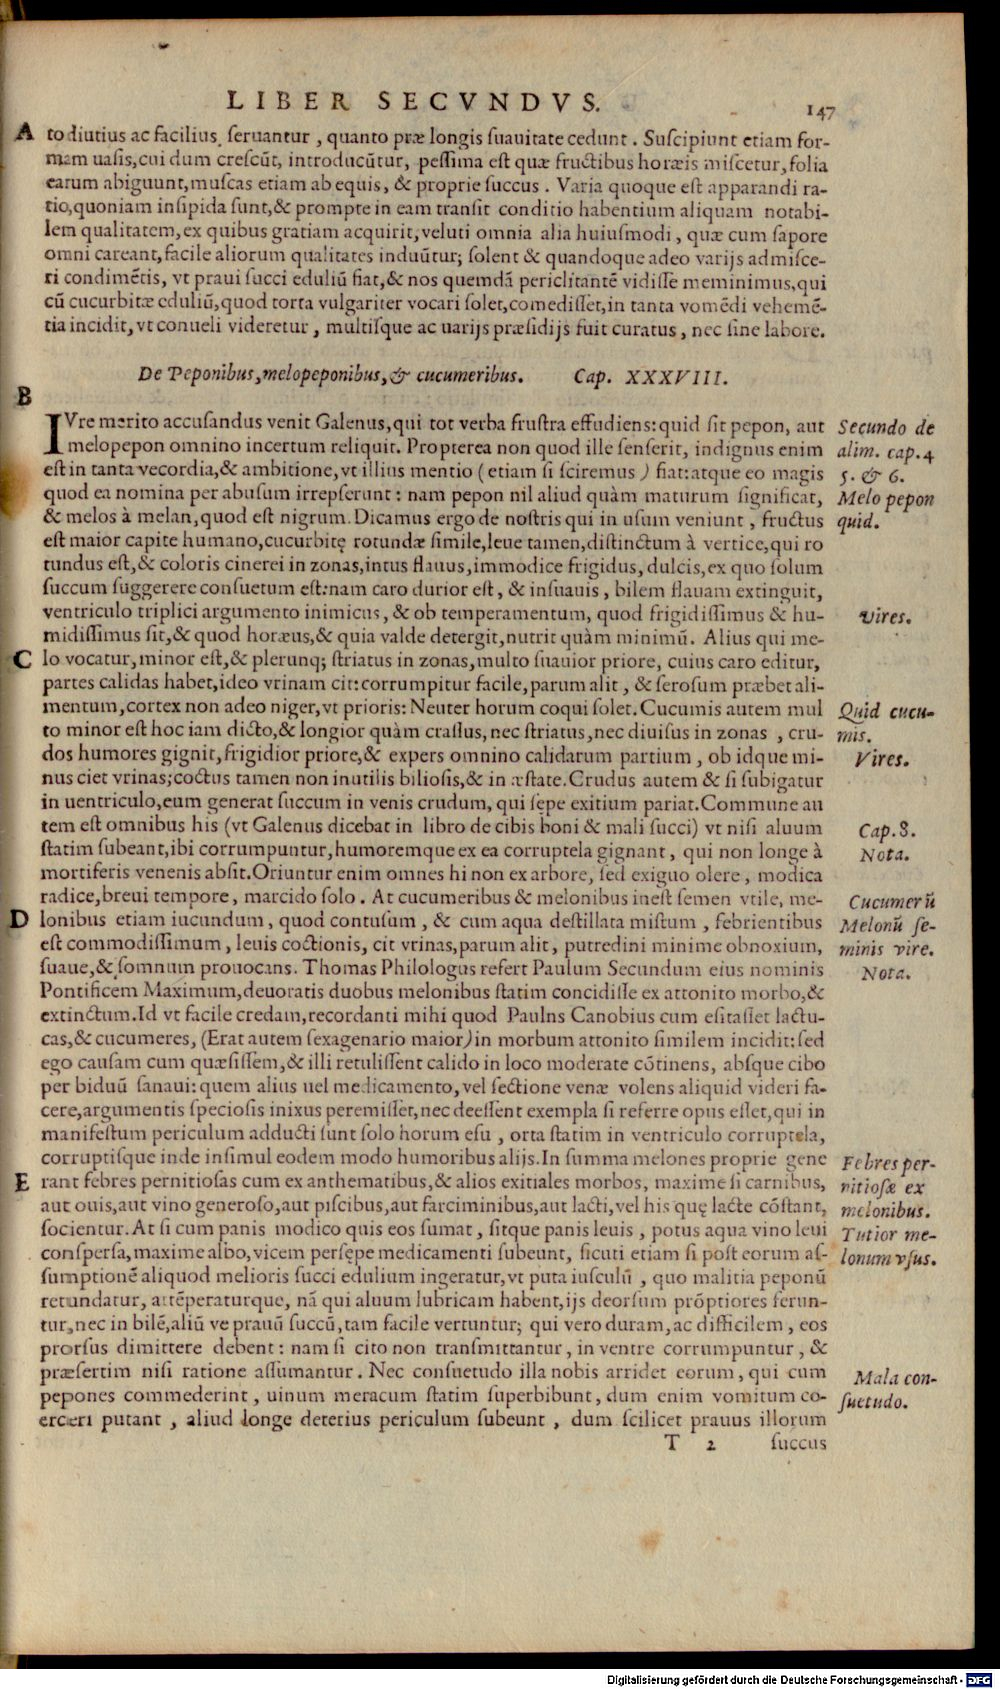 LIBER SECVNDVS.
147
A
to diutius ac facilius seruantur, quanto præ longis suauitate cedunt. Suscipiunt etiam for-
mam uasis, cui dum crescũt, introducũtur, pessima est quæ fructibus horæis miscetur, folia
earum abigunt, muscas etiam ab equis, & proprie succus. Varia quoque est apparandi ra-
tio, quoniam insipida sunt, & prompte in eam transit conditio habentium aliquam notabi-
lem qualitatem, ex quibus gratiam acquirit, veluti omnia alia huiusmodi, quæ cum sapore
omni careant, facile aliorum qualitates induũtur; solent & quandoque adeo varijs admisce-
ri condimẽtis, vt praui succi eduliũ fiat, & nos quemdã periclitantẽ vidisse meminimus, qui
cũ cucurbitæ eduliũ, quod torta vulgariter vocari solet, comedisset, in tanta vomẽdi vehemẽ-
tia incidit, vt conueli videretur, multisque ac uarijs præsidijs fuit curatus, nec sine labore.
De Peponibus, melopeponibus, & cucumeribus. Cap. XXXVIII.
B
IVre merito accusandus venit Galenus, qui tot verba frustra effudiens: quid sit pepon, aut
melopepon omnino incertum reliquit. Propterea non quod ille senserit, indignus enim
est in tanta vecordia, & ambitione, vt illius mentio (etiam si sciremus) fiat: atque eo magis
quod ea nomina per abusum irrepserunt: nam pepon nil aliud quàm maturum significat,
& melos à melan, quod est nigrum. Dicamus ergo de nostris qui in usum veniunt, fructus
est maior capite humano, cucurbitę rotundæ simile, leue tamen, distinctum à vertice, qui ro
tundus est, & coloris cinerei in zonas, intus flauus, immodice frigidus, dulcis, ex quo solum
succum suggerere consuetum est: nam caro durior est, & insuauis, bilem flauam extinguit,
ventriculo triplici argumento inimicus, & ob temperamentum, quod frigidissimus & hu-
midissimus sit, & quod horæus, & quia valde detergit, nutrit quàm minimũ. Alius qui me-
C
lo vocatur, minor est, & plerunq; striatus in zonas, multo suauior priore, cuius caro editur,
partes calidas habet, ideo vrinam cit: corrumpitur facile, parum alit, & serosum præbet ali-
mentum, cortex non adeo niger, vt prioris: Neuter horum coqui solet. Cucumis autem mul
to minor est hoc iam dicto, & longior quàm crassus, nec striatus, nec diuisus in zonas, cru-
dos humores gignit, frigidior priore, & expers omnino calidarum partium, ob idque mi-
nus ciet vrinas; coctus tamen non inutilis biliosis, & in æstate. Crudus autem & si subigatur
in uentriculo, eum generat succum in venis crudum, qui sępe exitium pariat. Commune au
tem est omnibus his (vt Galenus dicebat in libro de cibis boni & mali succi) vt nisi aluum
statim subeant, ibi corrumpuntur, humoremque ex ea corruptela gignant, qui non longe à
mortiferis venenis absit. Oriuntur enim omnes hi non ex arbore, sed exiguo olere, modica
radice, breui tempore, marcido solo. At cucumeribus & melonibus inest semen vtile, me-
D
lonibus etiam iucundum, quod contusum, & cum aqua destillata mistum, febrientibus
est commodissimum, leuis coctionis, cit vrinas, parum alit, putredini minime obnoxium,
suaue, & somnum prouocans. Thomas Philologus refert Paulum Secundum eius nominis
Pontificem Maximum, deuoratis duobus melonibus statim concidisse ex attonito morbo, &
extinctum. Id vt facile credam, recordanti mihi quod Paulns Canobius cum esitasset lactu-
cas, & cucumeres, (Erat autem sexagenario maior) in morbum attonito similem incidit: sed
ego causam cum quæsissem, & illi retulissent calido in loco moderate cõtinens, absque cibo
per biduũ sanaui: quem alius uel medicamento, vel sectione venæ volens aliquid videri fa-
cere, argumentis speciosis inixus peremisset, nec deessent exempla si referre opus esset, qui in
manifestum periculum adducti sunt solo horum esu, orta statim in ventriculo corruptela,
corruptisque inde insimul eodem modo humoribus alijs. In summa melones proprie gene
E
rant febres pernitiosas cum exanthematibus, & alios exitiales morbos, maxime si carnibus,
aut ouis, aut vino generoso, aut piscibus, aut farciminibus, aut lacti, vel his quę lacte cõstant,
socientur. At si cum panis modico quis eos sumat, sitque panis leuis, potus aqua vino leui
conspersa, maxime albo, vicem persępe medicamenti subeunt, sicuti etiam si post eorum as-
sumptionẽ aliquod melioris succi edulium ingeratur, vt puta iusculũ, quo malitia peponũ
retundatur, attẽperaturque, nã qui aluum lubricam habent, ijs deorsum prõptiores ferun-
tur, nec in bilẽ, aliũ ve prauũ succũ, tam facile vertuntur; qui vero duram, ac difficilem, eos
prorsus dimittere debent: nam si cito non transmittantur, in ventre corrumpuntur, &
præsertim nisi ratione assumantur. Nec consuetudo illa nobis arridet eorum, qui cum
pepones commederint, uinum meracum statim superbibunt, dum enim vomitum co-
erceri putant, aliud longe deterius periculum subeunt, dum scilicet prauus illorum
T 2 succus
Secundo de
alim. cap. 4
5. & 6.
Melo pepon
quid.
Vires.
Quid cucu-
mis.
Vires.
Cap. 8.
Nota.
Cucumerũ
Melonũ se-
minis vire.
Nota.
Febres per-
nitiosæ ex
melonibus.
Tutior me-
lonum vsus.
Mala con-
suetudo.
Digitalisierung gefördert durch die Deutsche Forschungsgemeinschaft - DFG